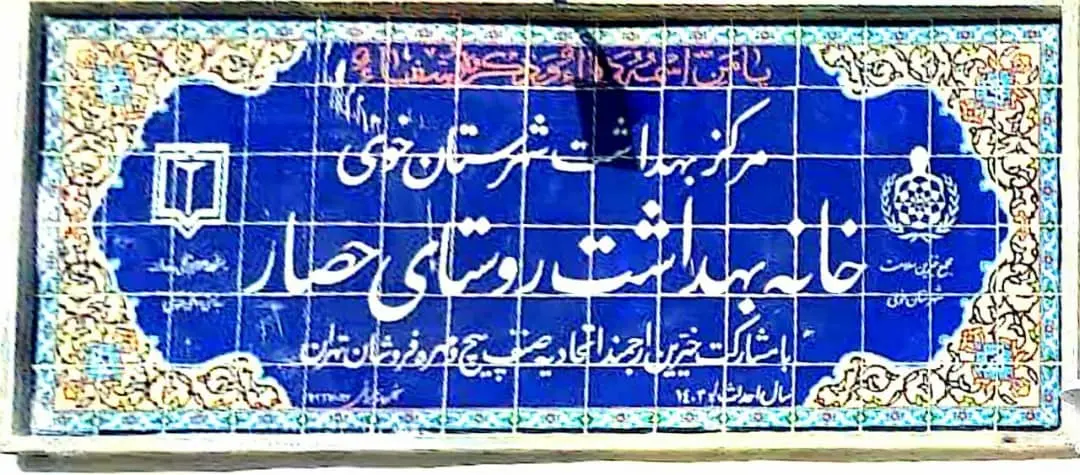 یا من اسمه دواء و ذکره شفاء
مرکز بهداشت شهرستان خوی
خانه بهداشت روستای حصار
مجمع خیرین سلامت
شهرستان خوی
با مشارکت خیرین ارجمند اتحادیه صنف پیچ و مهره فروشان تهران
سال احداث ۱۴۰۲